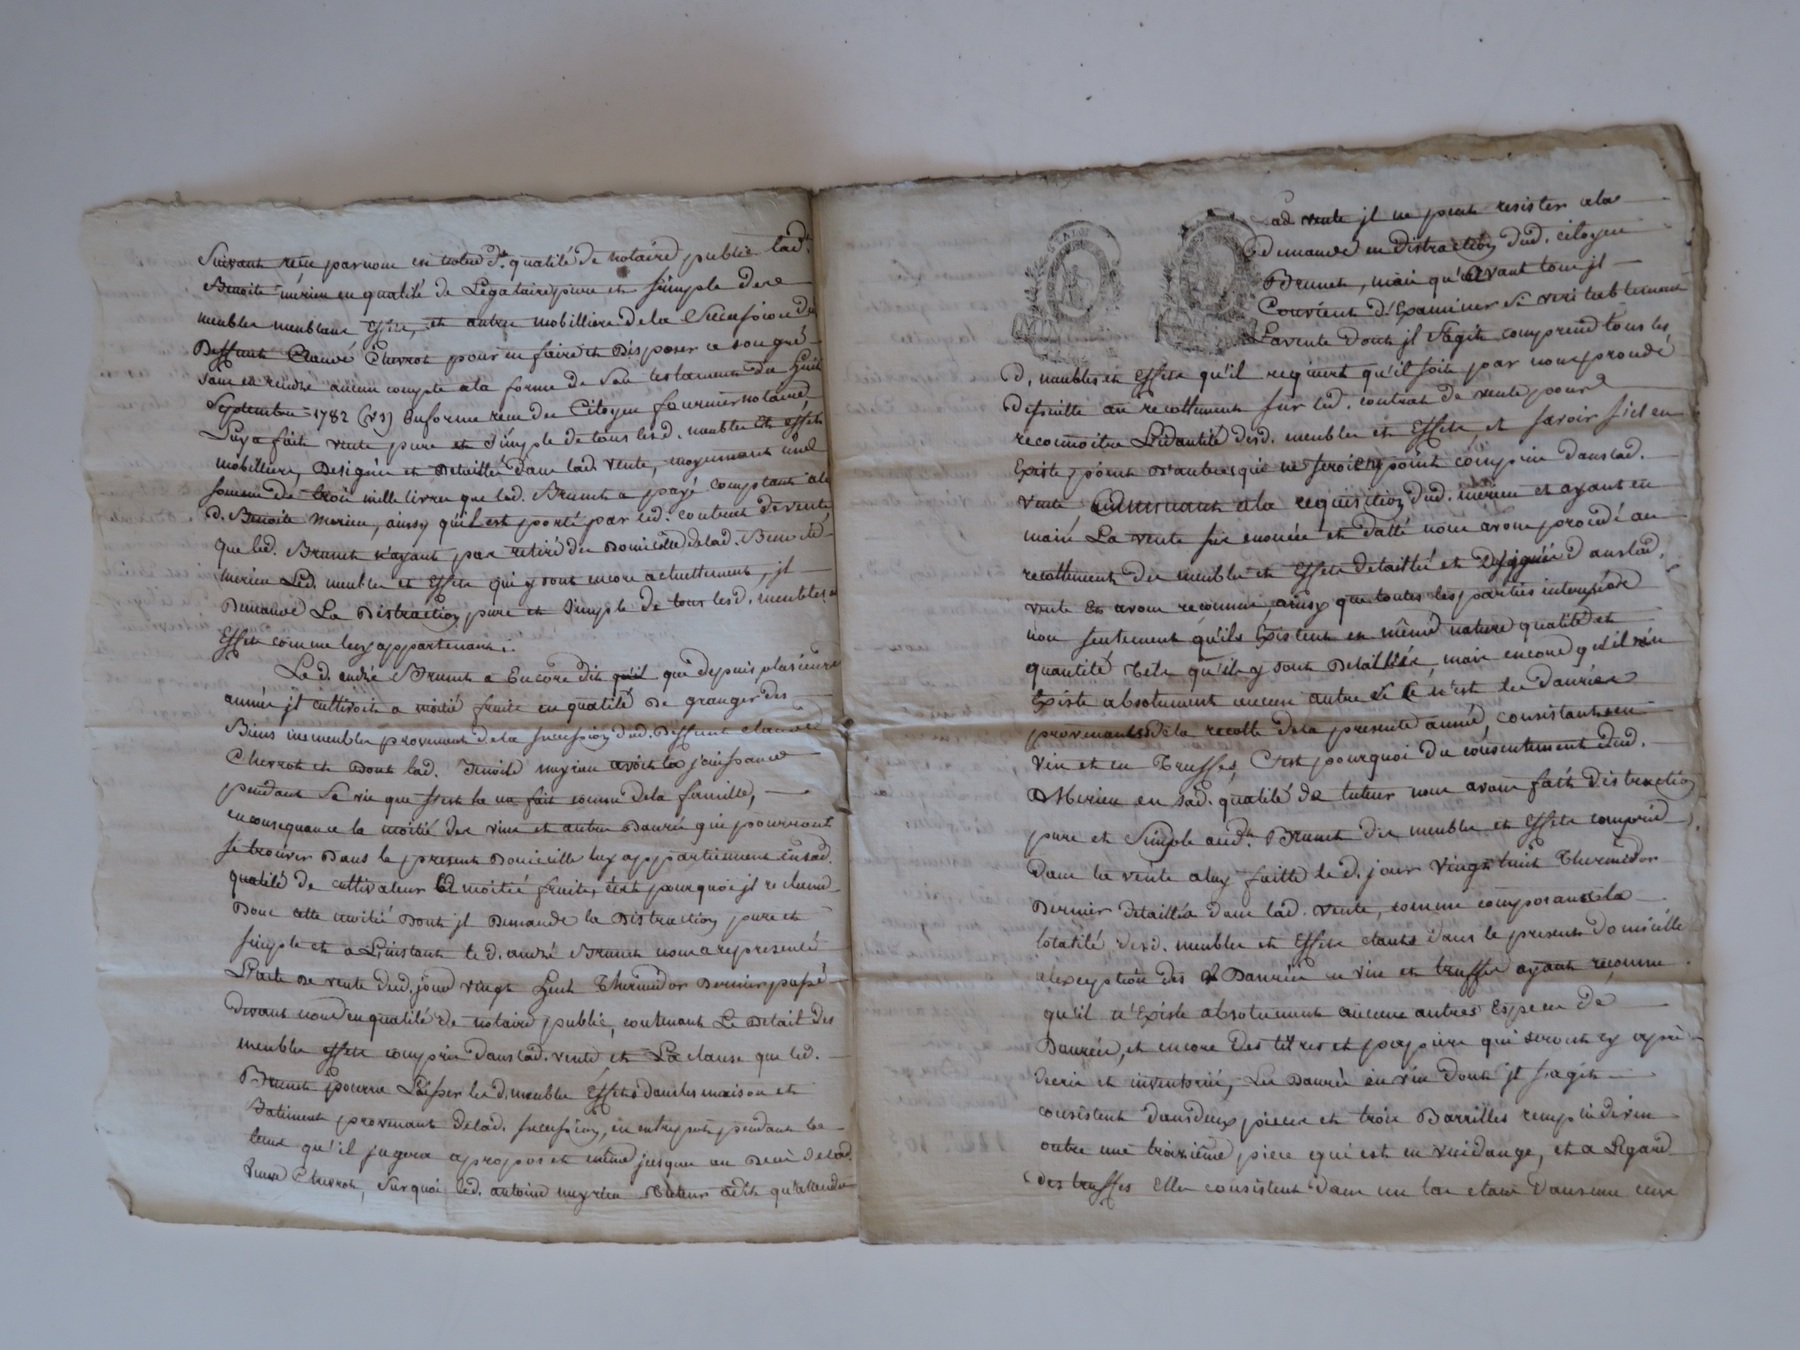 Suivant reçu par nous en notred. qualité de notaire public lad.
Benoite mérieu en qualité de Légataire pure et simple des
meubles meublans Effets, et autres mobilliers de la Succession du
Deffunt Claude Chevrot pour en faire et Disposer a son gré
sans en rendre aucun compte a la forme de son testament du huit
Septembre 1782 (v.s) en forme reçu du Citoyen fournier notaire
Luy a fait vente pure et simple de tous lesd. meubles et effets
mobilliers, Designés et Detaillés Dans lad. vente, moyennant une
somme de trois mille livres que led. Brunet a payé comptant a la
d. Benoite Merieu, ainsy qu'il est porté par led. contract de vente
que led. Brunet n'ayant pas retiré du Domicille de lad. Benoite
merieu Lesd. meubles et Effets qui y sont encore actuellement, jl
Demande La Distraction pure et simple de tous lesd. meubles et
Effets comme luy appartenant.
Le d. andré Brunet a Encore dit que depuis plusieurs
années jl cultivoit a moitié fruits en qualité de granger des
Biens immeubles provenant de la succession dud. Deffunt claude
Chevrot et dont lad. Benoite meyrieu avoit la jouissance
pendant sa vie que
en consequence la moitié des vins et autres Danrées qui pourront
se trouver Dans le present Domicille luy appartiennent en sad.
qualité de cultivateur a moitié fruits, c'est pourquoi jl reclame
Donc cette moitié Dont jl Demande la Distraction pure et
simple et a L'instant le d. andré Brunet nous a representé
L'acte de vente dud. jour vingt huit Thermidor Dernier passé
devant nous en qualité de notaire public, contenant Le Detail des
meubles effets compris dans lad. vente et La clause que led.
Brunet pourra Laisser lesd. meubles Effets dans les maison et
Batiment provenant de lad. succession, en entrepot pendant le
tems qu'il jugera apropos et même jusques au Deces de lad.
veuve Chevrot, surquoi led. antoine meyrieu tuteur a dit qu'attendu
lad vente jl ne peut resister a la
demande en Distraction dud. citoyen
Brunet, mais qu'avant tout jl
Convient d'Examiner si veritablement
La vente dont jl s'agit comprend tous les
d. meubles et Effets qu'il requiert qu'il soit par nous procedé
desuitte au recollement sur led. contrat de vente pour
reconnoitre L'identité desd. meubles et Effets et savoir s'il en
Existe point d'autres qui ne seroient point compris dans lad.
vente adherant a la requisition dud. merieu et ayant en
main La vente sus enoncée et dattée nous avons procedé au
recollement des meubles et Effets detaillés et Designés dans lad.
vente Et avons reconnu, ainsy que toutes les parties interessées
non seulement qu'ils Existent en même nature qualité et
quantité Tels qu'ils y sont Detaillés, mais encore qu'il n'en
Existe absolument aucun autre si Ce n'est les danrées
provenantes de la recolte de la presente année consistant en
vin et en Truffes, C'est pourquoi du consentement dud.
Merieu en sad. qualité de tuteur nous avons fait distraction
pure et simple aud. Brunet des meubles et Effets compris
dans la vente a luy faitte le d. jour vingt huit Thermidor
Dernier detaillés dans lad. vente, comme composant la
totalité desd. meubles et Effets etants dans le present domicille
a l'exception des Danrées en vin et truffes ayant reconnu
qu'il n'Existe absolument aucunes autres Especes de
Danrées, et encore des titres et papiers qui seront cy après
decris et inventoriés, Les Danrées en vin dont jl s'agit
consistent dans deux pieces et trois Barrilles remplis de vin
outre une troizième piece qui est en vuidange, et a L'egard
des truffes Elles consistent dans un tas etant dans une cave